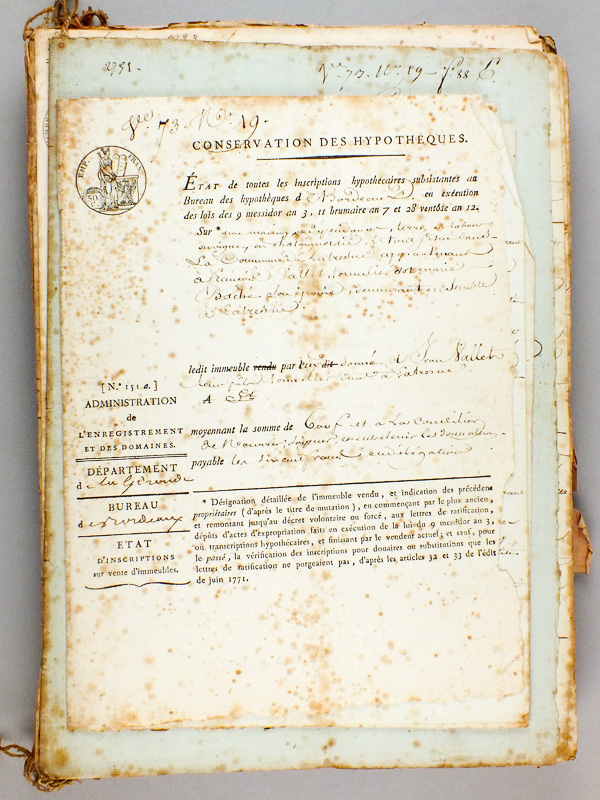 2751.
Vol. 73. No. 19 — fo. 88 C.
Vol. 73. No. 19.
CONSERVATION DES HYPOTHÈQUES.
EMP. FRAN.
50
ÉTAT de toutes les inscriptions hypothécaires subsistantes au
Bureau des hypothèques d Bordeaux en exécution
des lois des 9 messidor an 3, 11 brumaire an 7 et 28 ventôse an 12.
Sur * une maison terre en labour
en
La Commune de Latresne appartenant
à françois Vallet tonnelier et marie
son épouse demeurant ensemble
à Latresne
ledit immeuble vendu par donné à Jean Vallet
leur fils tonnelier à Latresne
A
moyennant la somme de 600 f et à La Condition
de nourrir, soigner, entretenir les donateurs
payable les six cent francs en délégation
[N.° 151 a.]
ADMINISTRATION
de
L'ENREGISTREMENT
ET DES DOMAINES.
DÉPARTEMENT
d e la Gironde
BUREAU
d e Bordeaux
ETAT
D'INSCRIPTIONS
sur vente d'immeubles.
* Désignation détaillée de l'immeuble vendu, et indication des précédens
propriétaires (d'après le titre de mutation), en commençant par le plus ancien,
et remontant jusqu'au décret volontaire ou forcé, aux lettres de ratification,
dépôts d'actes d'expropriation faits en exécution de la loi du 9 messidor an 3,
ou transcriptions hypothécaires, et finissant par le vendeur actuel; et sauf, pour
le passé, la vérification des inscriptions pour douaires ou substitutions que les
lettres de ratification ne purgeaient pas, d'après les articles 32 et 33 de l'édit
de juin 1771.